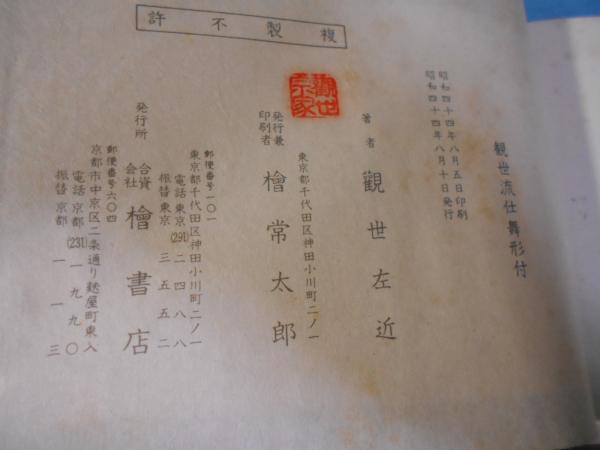 観世流仕舞形付
昭和四十四年八月五日印刷
昭和四十四年八月十日発行
著者 觀世左近
東京都千代田区神田小川町二ノ一
発行兼印刷者 檜常太郎
郵便番号一〇一
東京都千代田区神田小川町二ノ一
電話東京(291)二四八八
振替東京三五五二
発行所 合資会社 檜書店
郵便番号六〇四
京都市中京区二条通り麩屋町東入
電話京都(231)一九九〇
振替京都一一三
複製不許
観世宗家